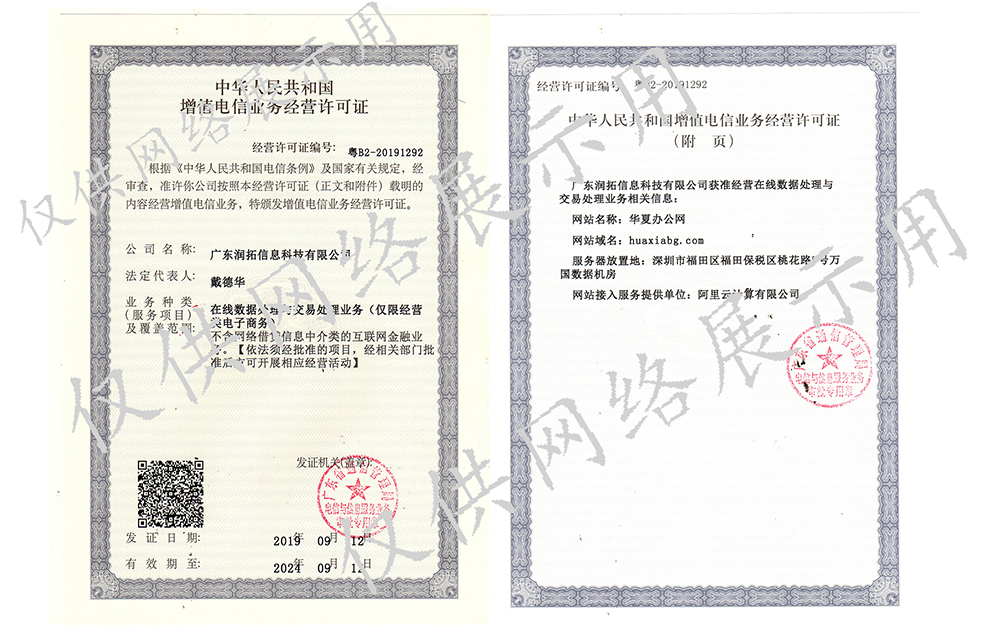 中华人民共和国
增值电信业务经营许可证
经营许可证编号: 粤B2-20191292
根据《中华人民共和国电信条例》及国家有关规定，经
审查，准许你公司按照本经营许可证（正文和附件）载明的
内容经营增值电信业务，特颁发增值电信业务经营许可证。
公司名称: 广东润拓信息科技有限公司
法定代表人: 戴德华
业务种类
(服务项目)
及覆盖范围:
在线数据处理与交易处理业务（仅限经营
类电子商务）
不含网络借贷信息中介类的互联网金融业
务。【依法须经批准的项目，经相关部门批
准后方可开展相应经营活动】
发证机关(盖章):
广东省通信管理局
电信与信息服务业务
审批专用章
发证日期: 2019年 09月 12日
有效期至: 2024年 09月 日
经营许可证编号: 粤B2-20191292
中华人民共和国增值电信业务经营许可证
（附 页）
广东润拓信息科技有限公司获准经营在线数据处理与
交易处理业务相关信息：
网站名称：华夏办公网
网站域名：huaxiabg.com
服务器放置地：深圳市福田区福田保税区桃花路 号万
国数据机房
网站接入服务提供单位：阿里云计算有限公司
广东省通信管理局
电信与信息服务业务
审批专用章
仅供网络展示用
仅供网络展示用
仅供网络展示用